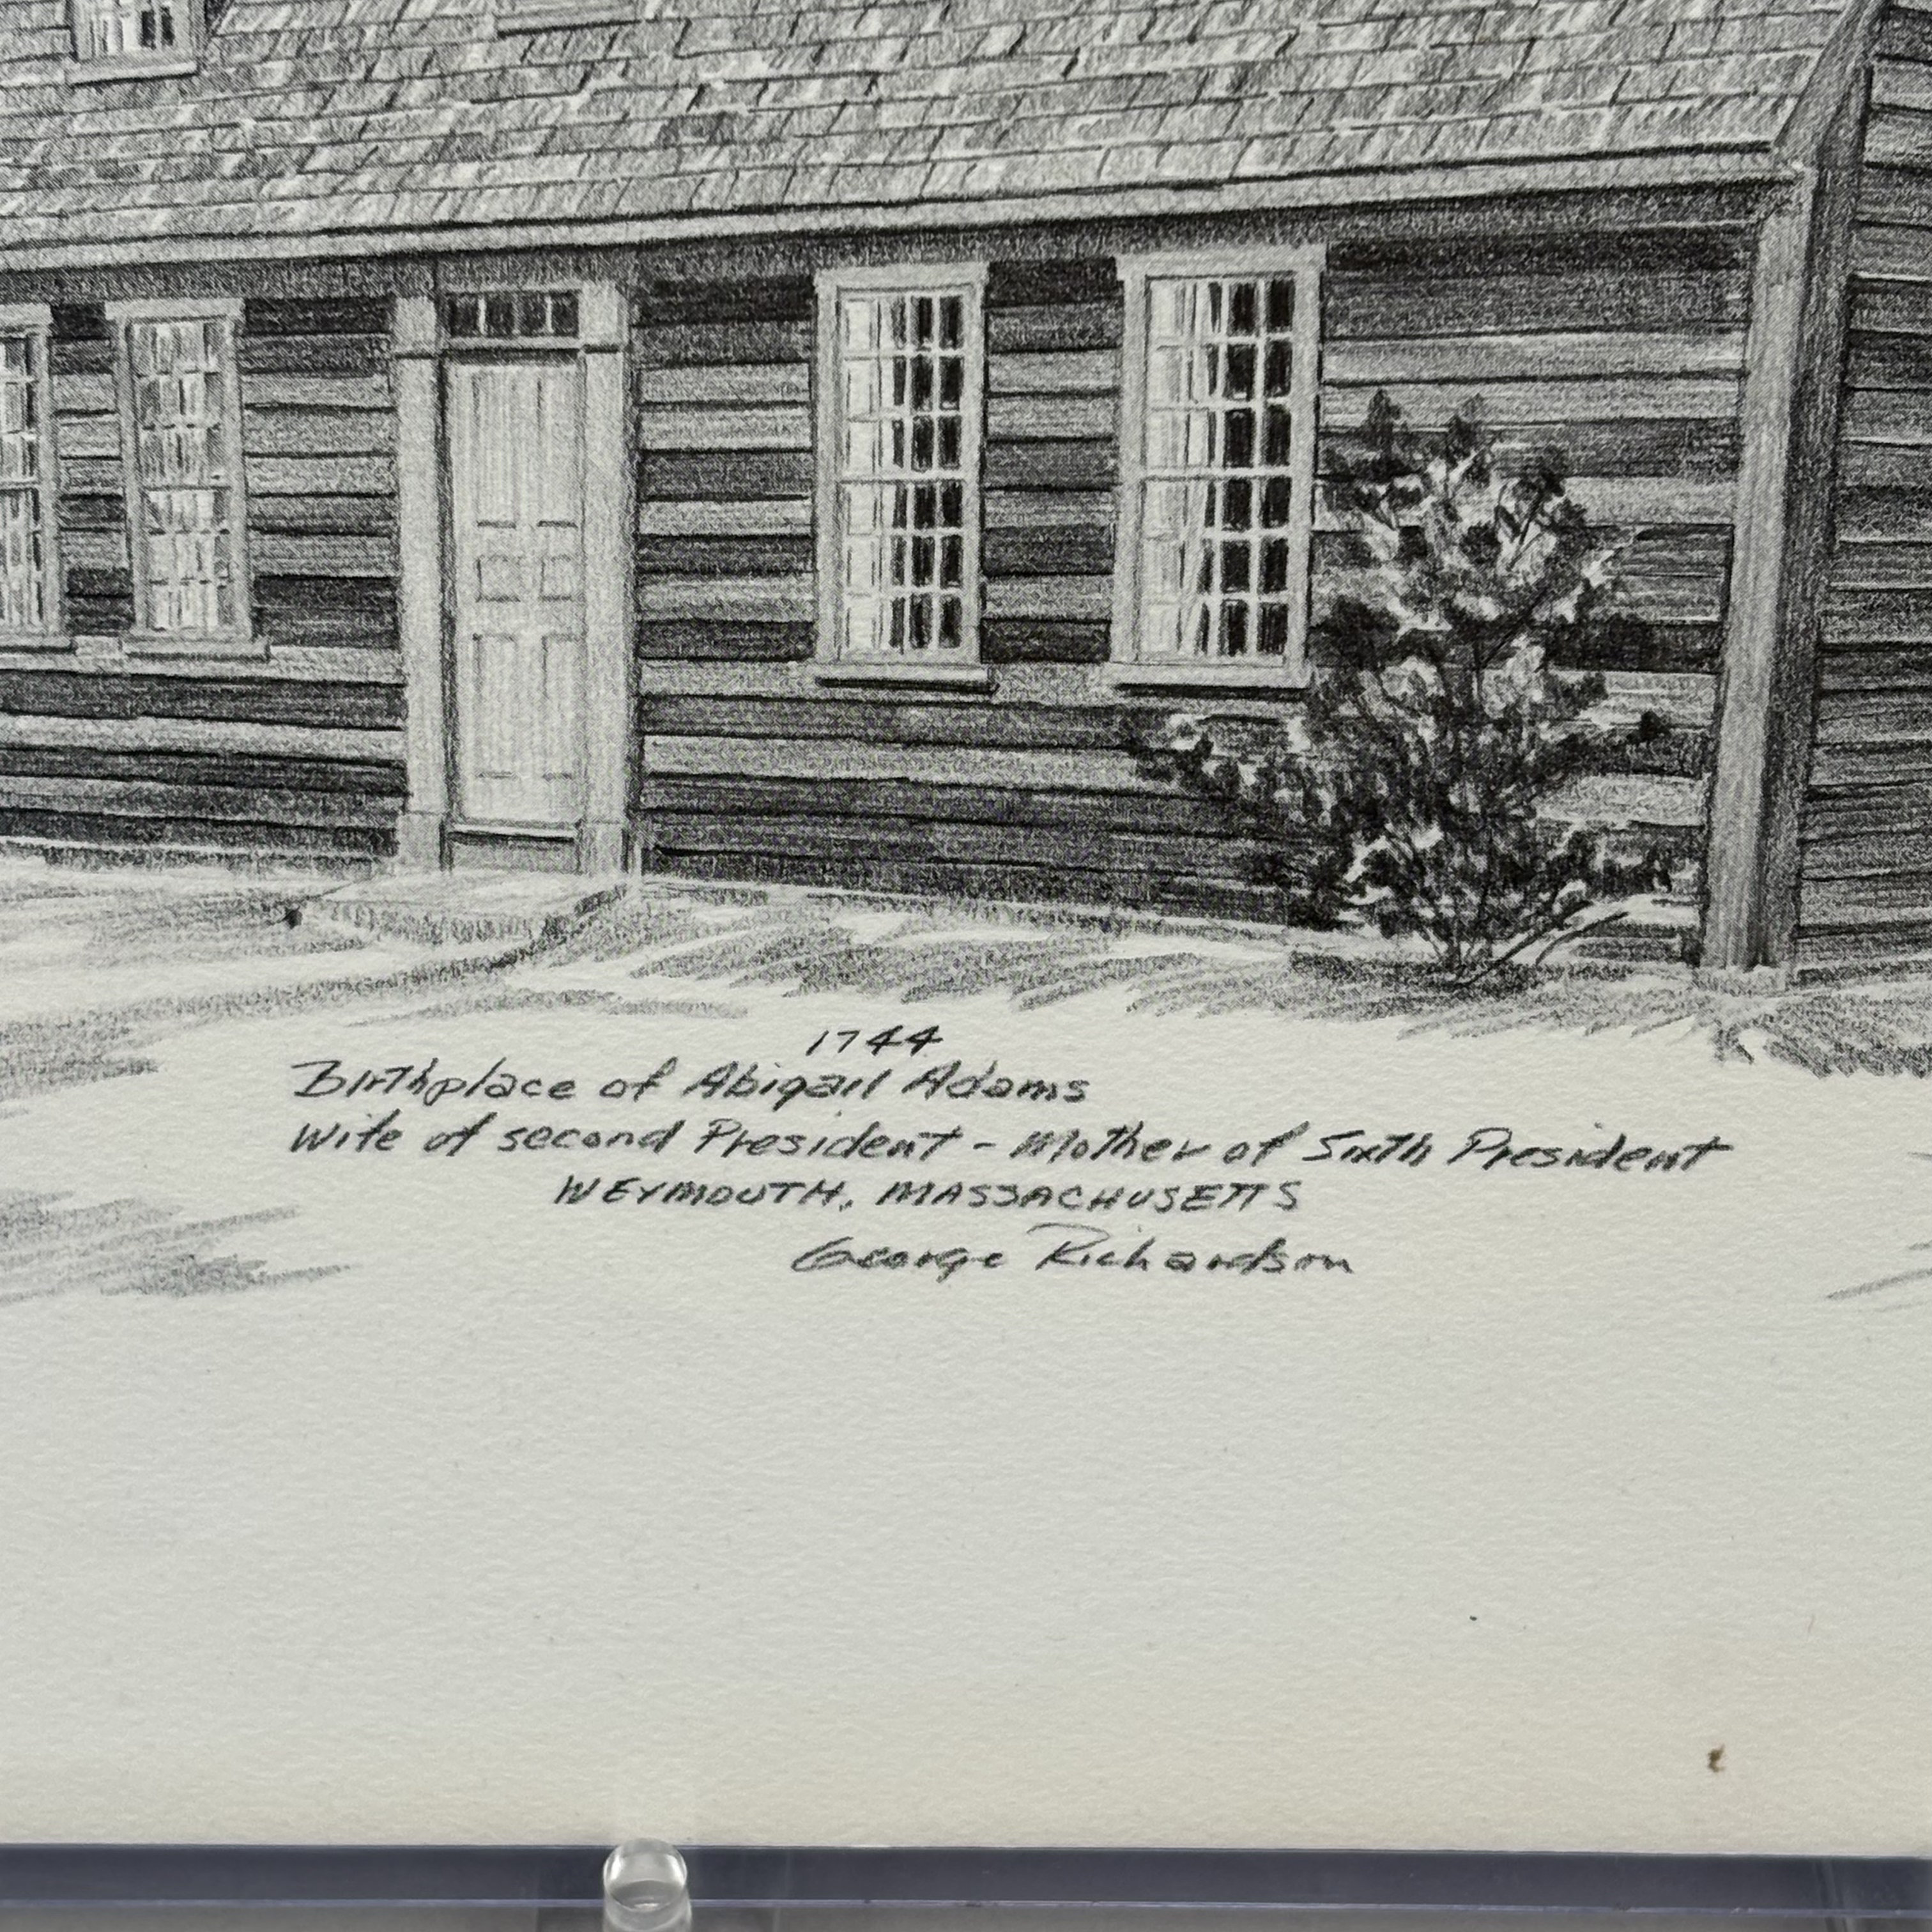 1744
Birthplace of Abigail Adams
Wife of second President - Mother of Sixth President
WEYMOUTH, MASSACHUSETTS
George Richardson